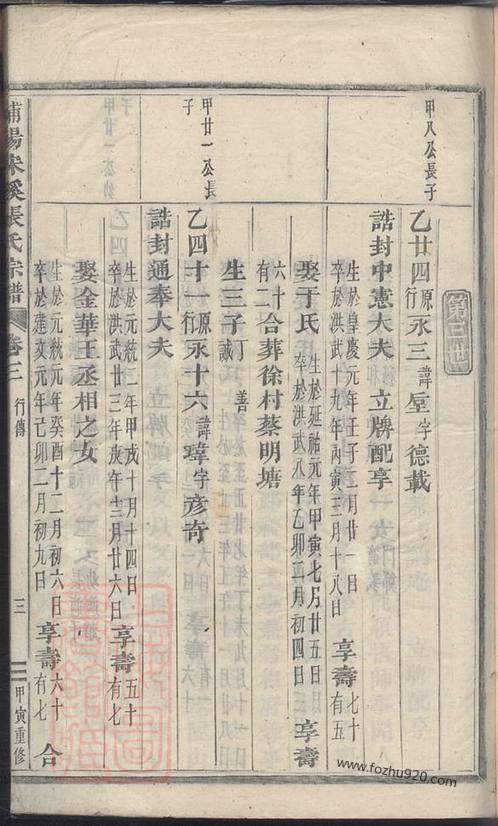 第三世
甲八公長子
乙廿四原行永三諱垕字德載
誥封中憲大夫立牌配享
生於皇慶元年壬子二月廿一日
卒於洪武十九年丙寅三月十八日
享壽七十有五
娶于氏
生於延祐元年甲寅七月廿五日
卒於洪武八年乙卯二月初四日
享壽六十有二合葬徐村蔡明塘
生三子
甲廿一公長子
乙四十一原行永十六諱瑋字彥奇
誥封通奉大夫
生於元統二年甲戌十月十四日
卒於洪武廿三年庚午三月廿六日
享壽五十有七
娶金華王丞相之女
生於元統元年癸酉十二月初六日
卒於建文元年己卯二月初九日
享壽六十有七
合
浦陽朱溪張氏宗譜
卷三
行傳
三
甲寅重修
www.fozhu920.com